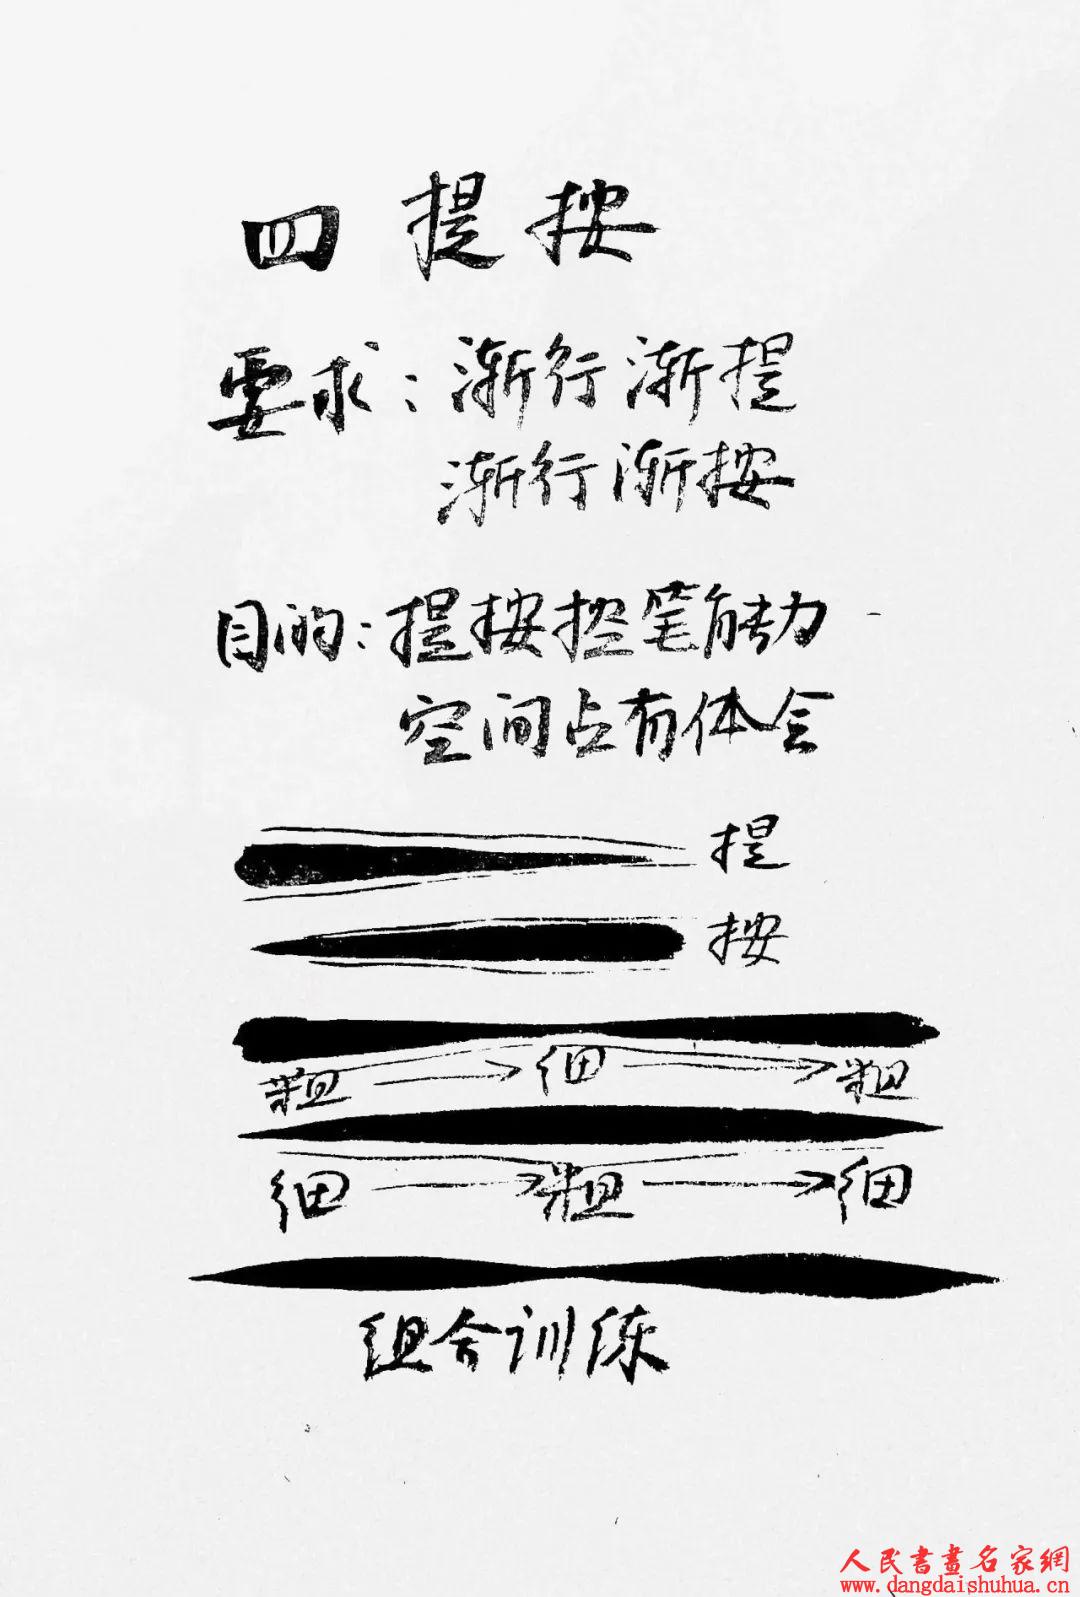 四 提按
要求：渐行渐提
渐行渐按
目的：提按控笔能力
空间占有体会
提
按
粗 → 细 → 粗
细 → 粗 → 细
组合训练
人民書畫名家網
www.dangdaishuhua.cn